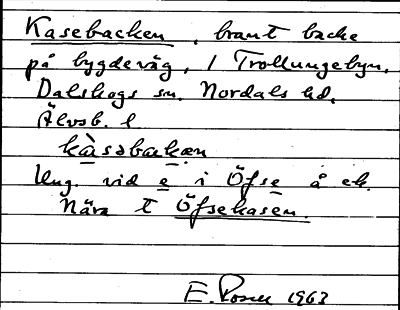 Kasebacken, brant backe
på bygdeväg, i Trollungebyn.
Dalskogs sn. Nordals hd.
Älvsb. l
kàsəbakæn
Ung. vid e i Öfse å ek.
Nära t Öfsekasen.
E. 1963